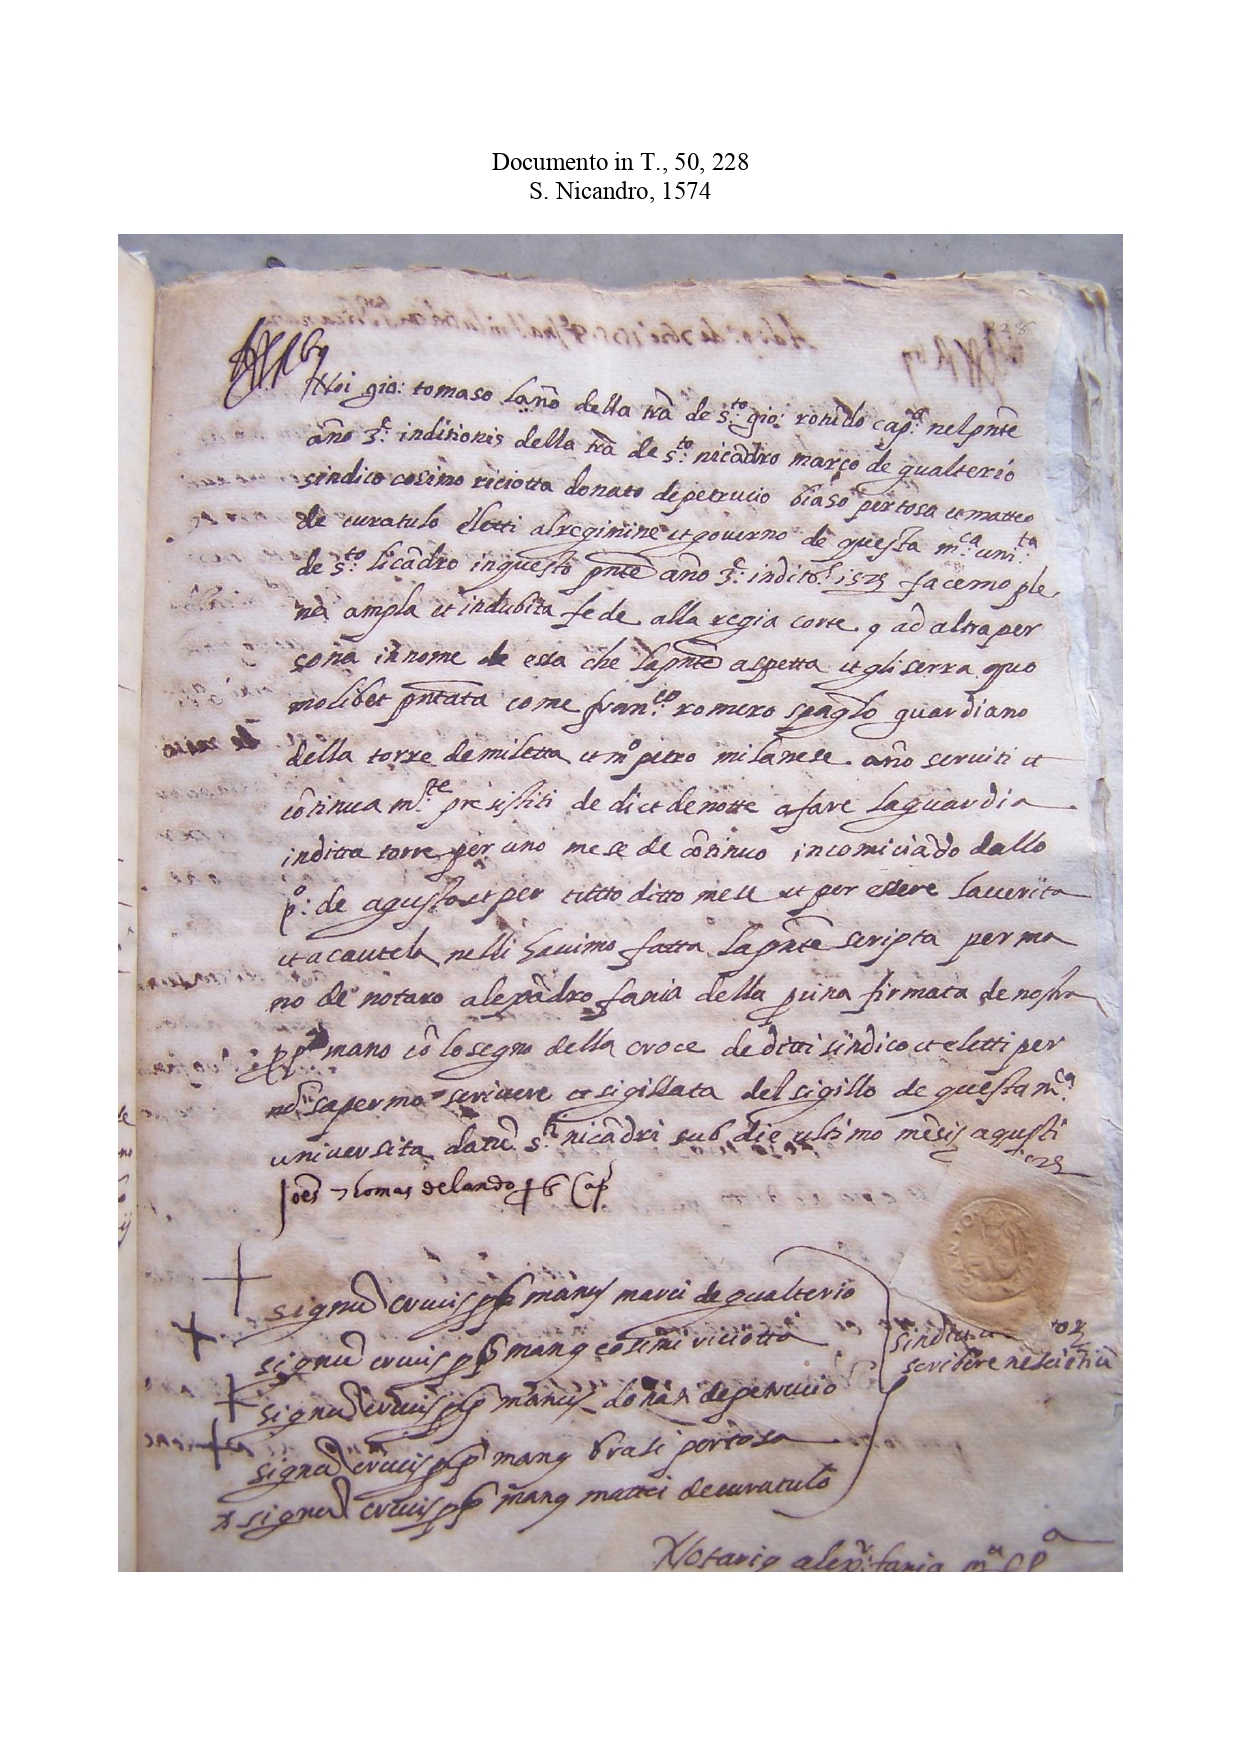 Documento in T., 50, 228
S. Nicandro, 1574
228
Noi gio: tomaso lãno della trã de s.to gio: rotũdo cap.o nel pnte
año 3.e inditionis della trã de s.to nicãdro marco de qualterio
sindico cosimo riciotta donato de petrucio biaso pertosa et matteo
de curatulo eletti al regimine et governo de questa m.ca uni.ta
de s.to licãdro in questo pnte año 3.e indit. facemo ple
na ampla et indubita fede alla regia corte ad altra per
sona in nome de essa che la pnte aspetta et gli serra quo
molibet pntata come fran.co romero spaglo guardiano
della torre de miletta et m.o petro milanese año serviti et
cõtinua m.te presistiti de di et de notte a fare la guardia
in ditta torre per uno mese de cõtinuo incomiciãdo dallo
p.o de agusto et per tutto ditto mese et per essere la verita
et a cautela nelli havimo fatta la pnte scripta per ma
no de notaro alexãdro fania della firmata de nostra
pp.a mano cõ lo segno della croce de ditti sindico et eletti per
nõ saperno scrivere et sigillata del sigillo de questa m.ca
universita datũ s.ti nicãdri sub die ultimo mẽsis agusti
Joes Thomas de lando Cap
signũ crucis pp manus marci de qualterio
signũ crucis pp manus cosimi riciotta
signũ crucis pp manus donati de petruccio
signũ crucis pp manus brasi pertosa
signũ crucis pp manus mattei de curatulo
scribere nescietiũ
Notarius alex.r fania